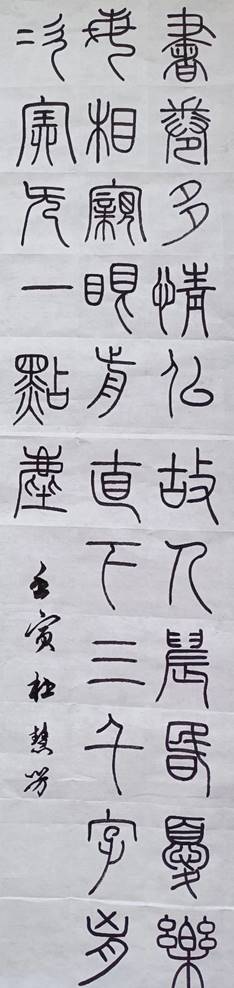 書卷多情似故人晨昏憂樂
每相親眼前直下三千字胸
次全无一點塵
壬寅杜慧